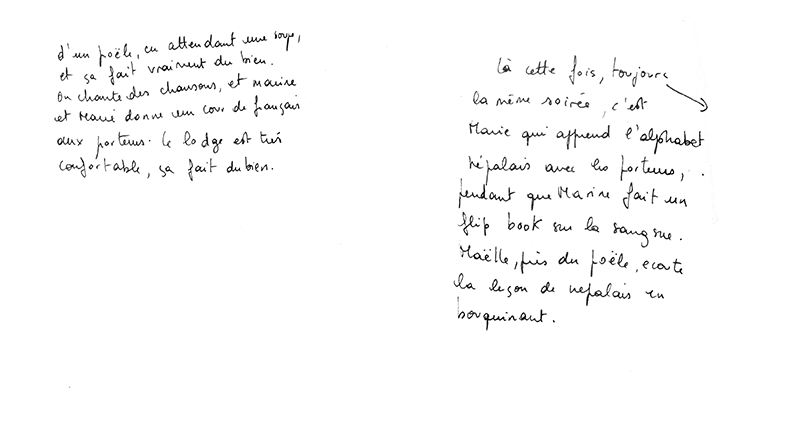 d'un poële, en attendant une soupe,
et ça fait vraiment du bien.
On chante des chansons, et Marine
et Marie donne un cour de français
aux porteurs. Le lodge est très
confortable, ça fait du bien.
Là cette fois, toujours
la même soirée, c'est
Marie qui apprend l'alphabet
népalais avec les porteurs,
pendant que Marine fait un
flip book sur la sangsue.
Maëlle, près du poële, ecoute
la leçon de nepalais en
bouquinant.